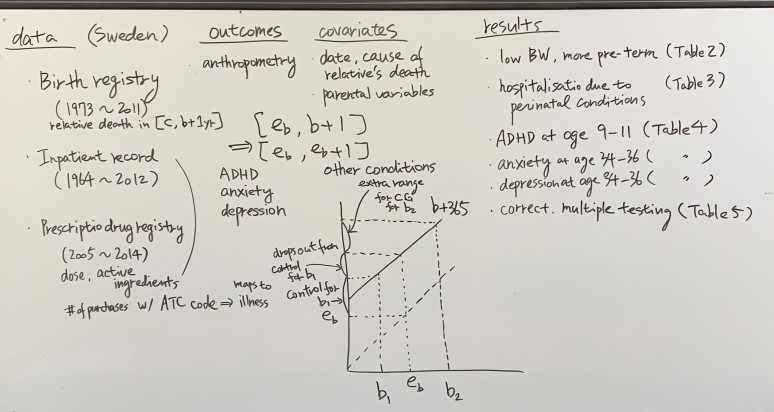 data (Sweden)
· Birth registry
(1973 ~ 2011)
relative death in [c, b+1yr]
· Inpatient record
(1964 ~ 2012)
· Prescriptio drug registry
(2005 ~ 2014)
dose, active
ingredients
# of purchases w/ ATC code ⇒ illness
maps to
outcomes
anthropometry
ADHD
anxiety
depression
covariates
· date, cause of
relative's death
· parental variables
[e_b, b+1]
⇒ [e_b, e_b+1]
other conditions
extra range
for CG
for b2
b+365
drops out from
control
for b1
control for
b1
e_b
b1
e_b
b2
results
· low BW, more pre-term (Table 2)
· hospitalisatio due to (Table 3)
perinatal conditions
· ADHD at age 9-11 (Table 4)
· anxiety at age 34-36 ( " )
· depression at age 34-36 ( " )
· correct. multiple testing (Table 5)